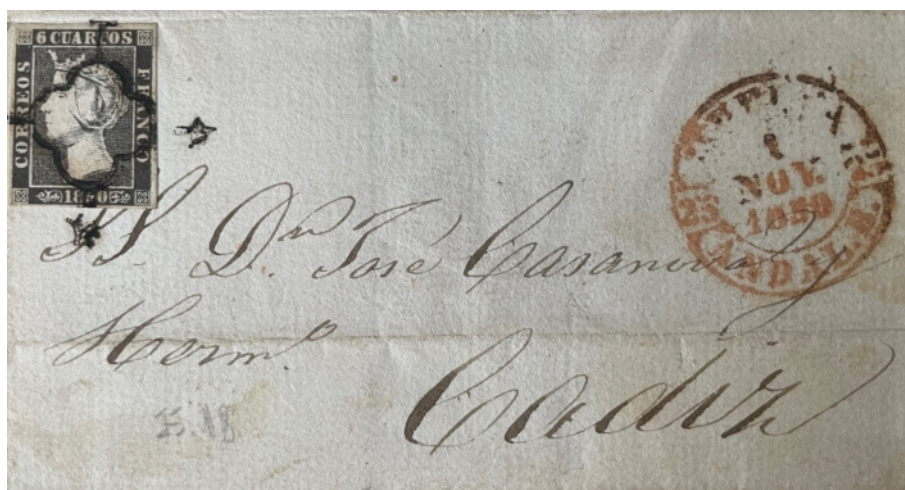 6 CUARTOS
CORREOS
FRANCO
1850
1
NOV.
1850
25
25
ANDAL. B.
SS. Dn. José Casanova y
Hermo
Cadiz